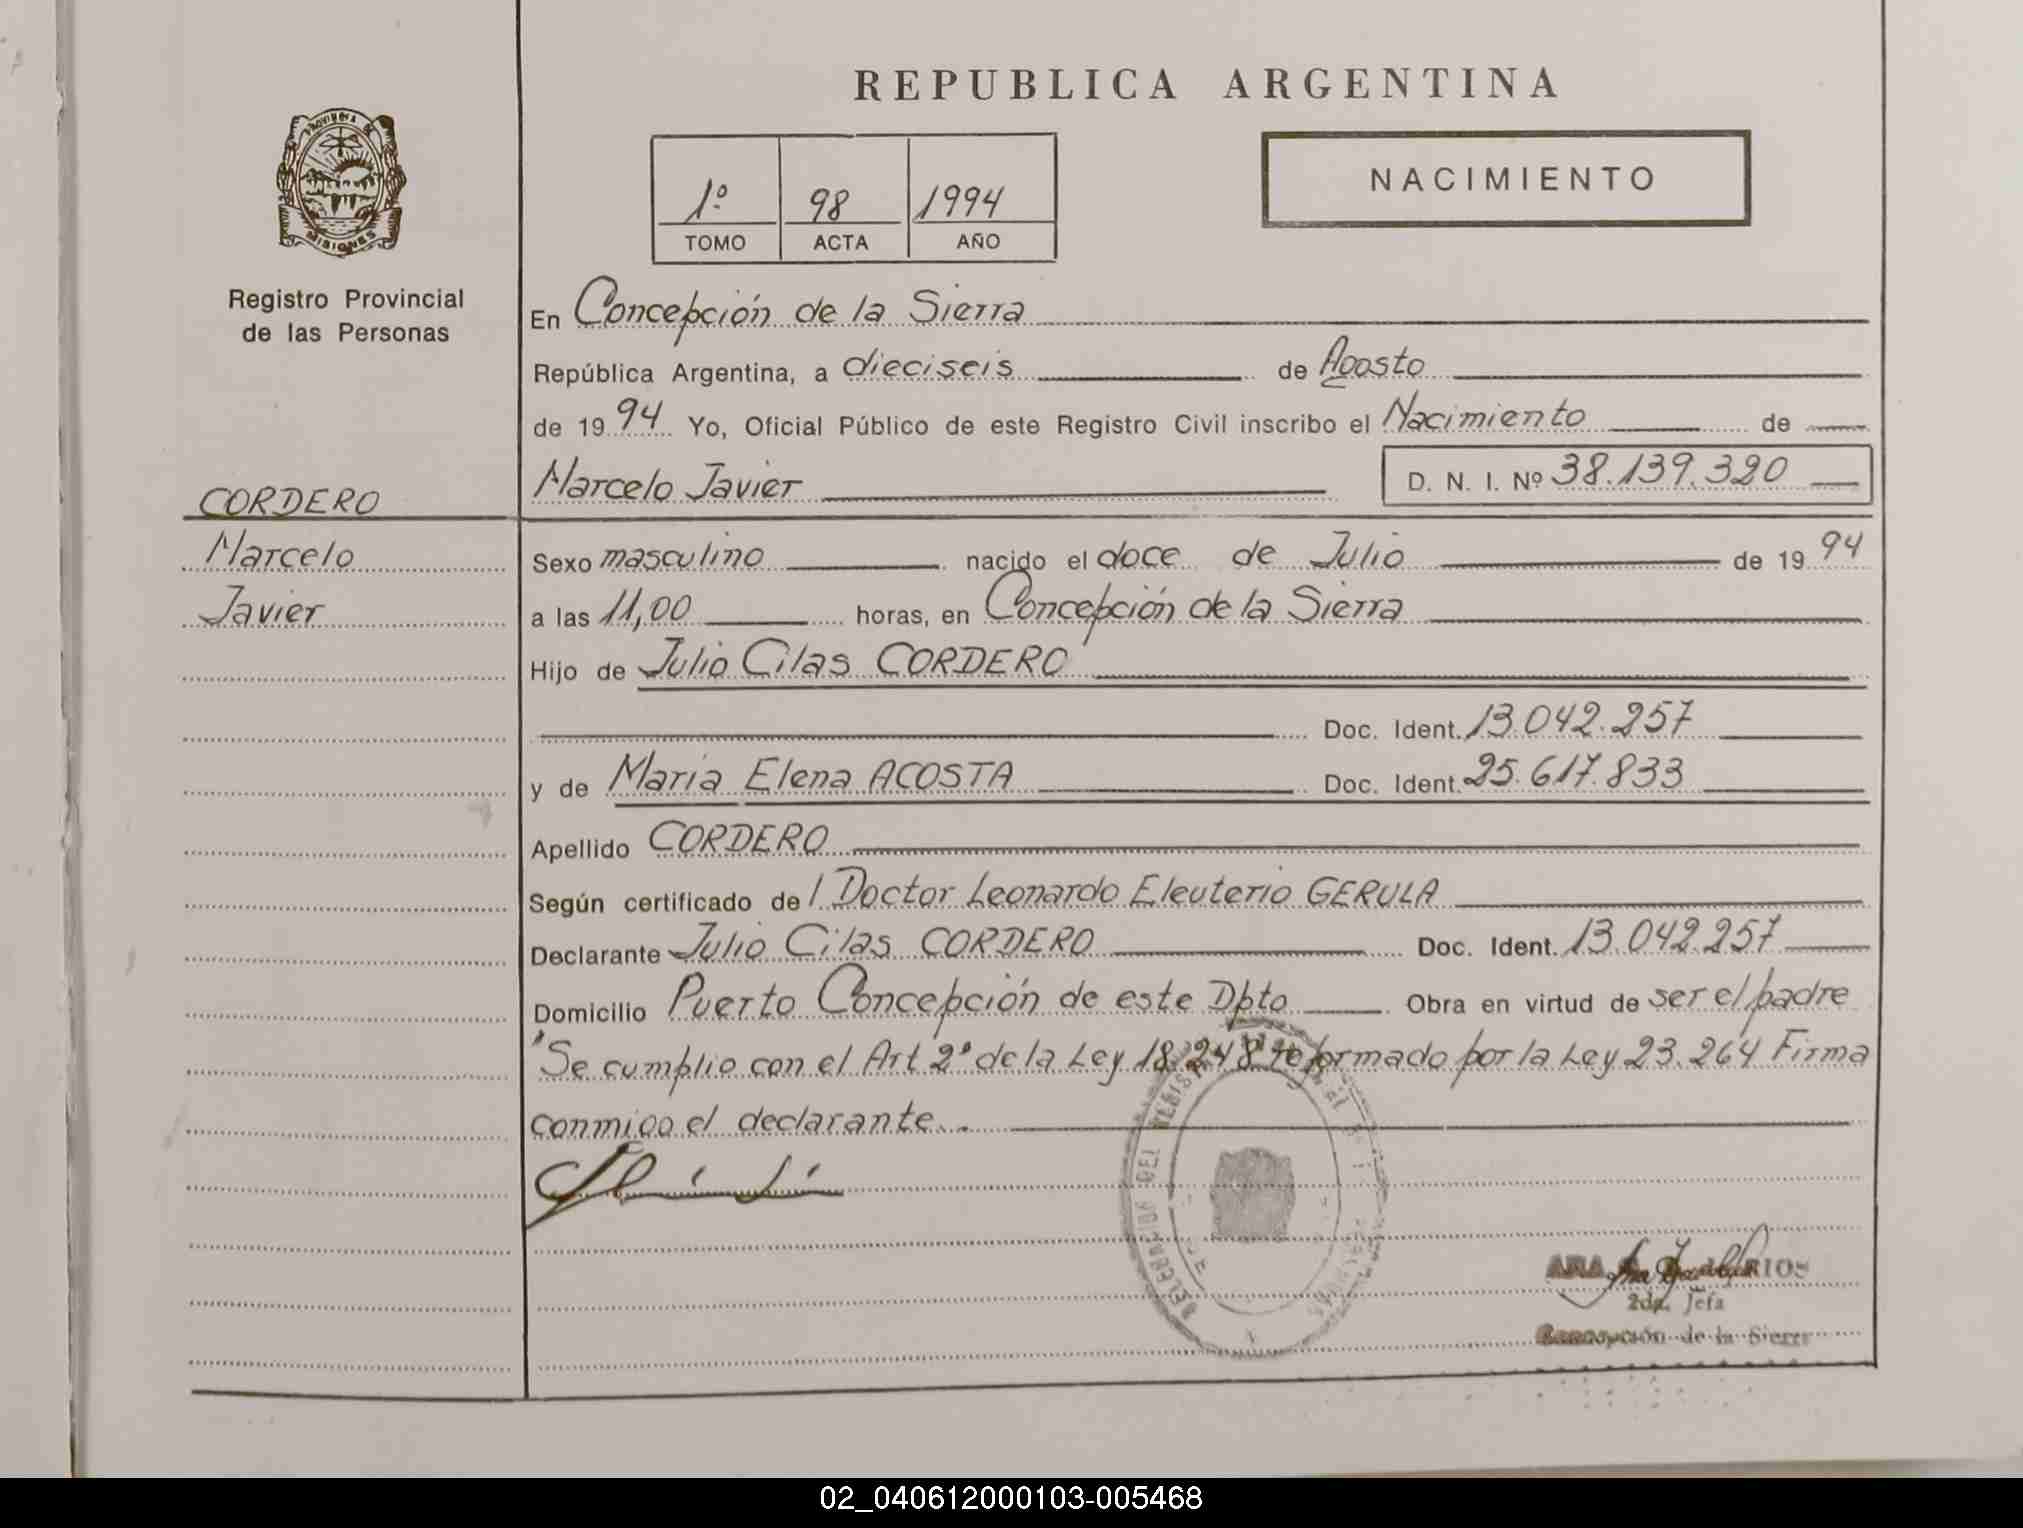 REPUBLICA ARGENTINA
PROVINCIA DE
MISIONES
Registro Provincial
de las Personas
1º 98 1994
TOMO ACTA AÑO
NACIMIENTO
En Concepción de la Sierra
República Argentina, a dieciseis de Agosto
de 1994 Yo, Oficial Público de este Registro Civil inscribo el Nacimiento de
Marcelo Javier D. N. I. Nº 38.139.320
CORDERO
Marcelo
Javier
Sexo masculino nacido el doce de Julio de 1994
a las 11,00 horas, en Concepción de la Sierra
Hijo de Julio Cilas CORDERO
Doc. Ident. 13.042.257
y de Maria Elena ACOSTA Doc. Ident. 25.617.833
Apellido CORDERO
Según certificado de l Doctor Leonardo Eleuterio GERULA
Declarante Julio Cilas CORDERO Doc. Ident. 13.042.257
Domicilio Puerto Concepción de este Dpto Obra en virtud de ser el padre
"Se cumplio con el Art 2º de la Ley 18.248 reformado por la Ley 23.264 Firma
conmigo el declarante.
DEL
2da. Jefa
de la Sierra
02_040612000103-005468